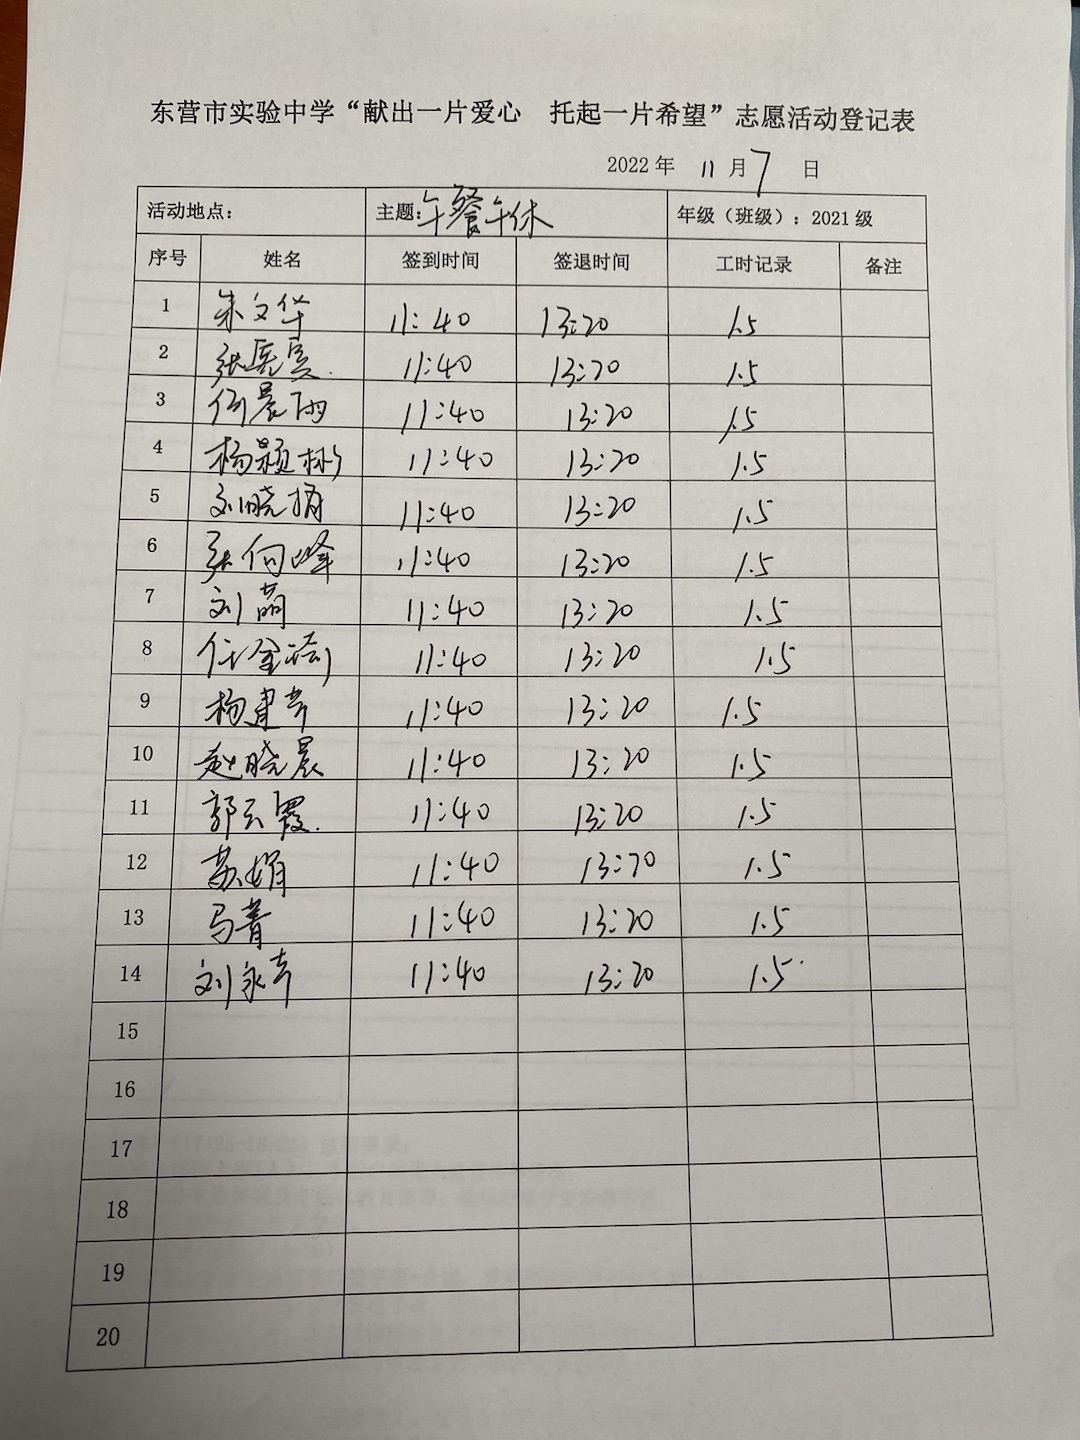 东营市实验中学“献出一片爱心 托起一片希望”志愿活动登记表
2022 年 11 月 7 日
活动地点： 主题：午餐午休 年级（班级）：2021 级
序号 姓名 签到时间 签退时间 工时记录 备注
1 朱文华 11:40 13:20 1.5
2 张 11:40 13:20 1.5
3 何晨雨 11:40 13:20 1.5
4 杨颖彬 11:40 13:20 1.5
5 刘晓 11:40 13:20 1.5
6 张向峰 11:40 13:20 1.5
7 刘萌 11:40 13:20 1.5
8 任金 11:40 13:20 1.5
9 杨建芳 11:40 13:20 1.5
10 赵晓晨 11:40 13:20 1.5
11 郭云霞 11:40 13:20 1.5
12 苏娟 11:40 13:20 1.5
13 马菁 11:40 13:20 1.5
14 刘永 11:40 13:20 1.5
15
16
17
18
19
20